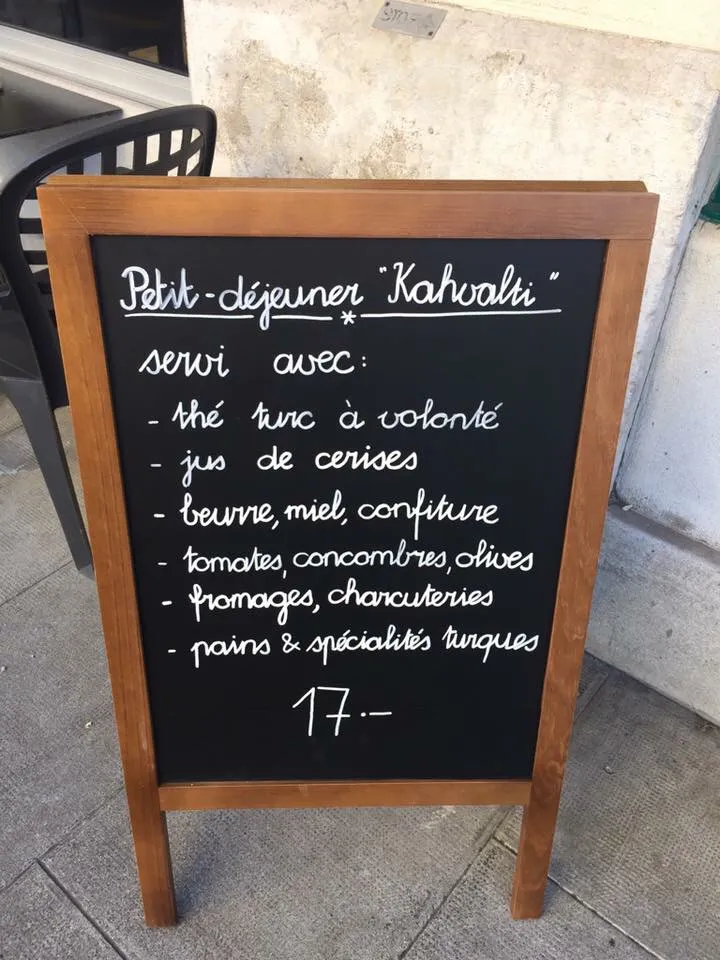 Petit-déjeuner "Kahvalti"
*
servi avec:
- thé turc à volonté
- jus de cerises
- beurre, miel, confiture
- tomates, concombres, olives
- fromages, charcuteries
- pains & spécialités turques
17.-